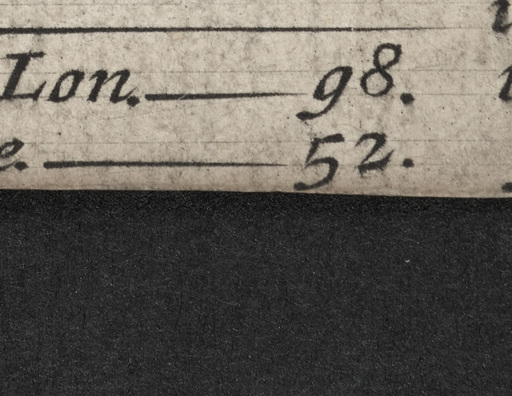 Lon. 98.
e. 52.